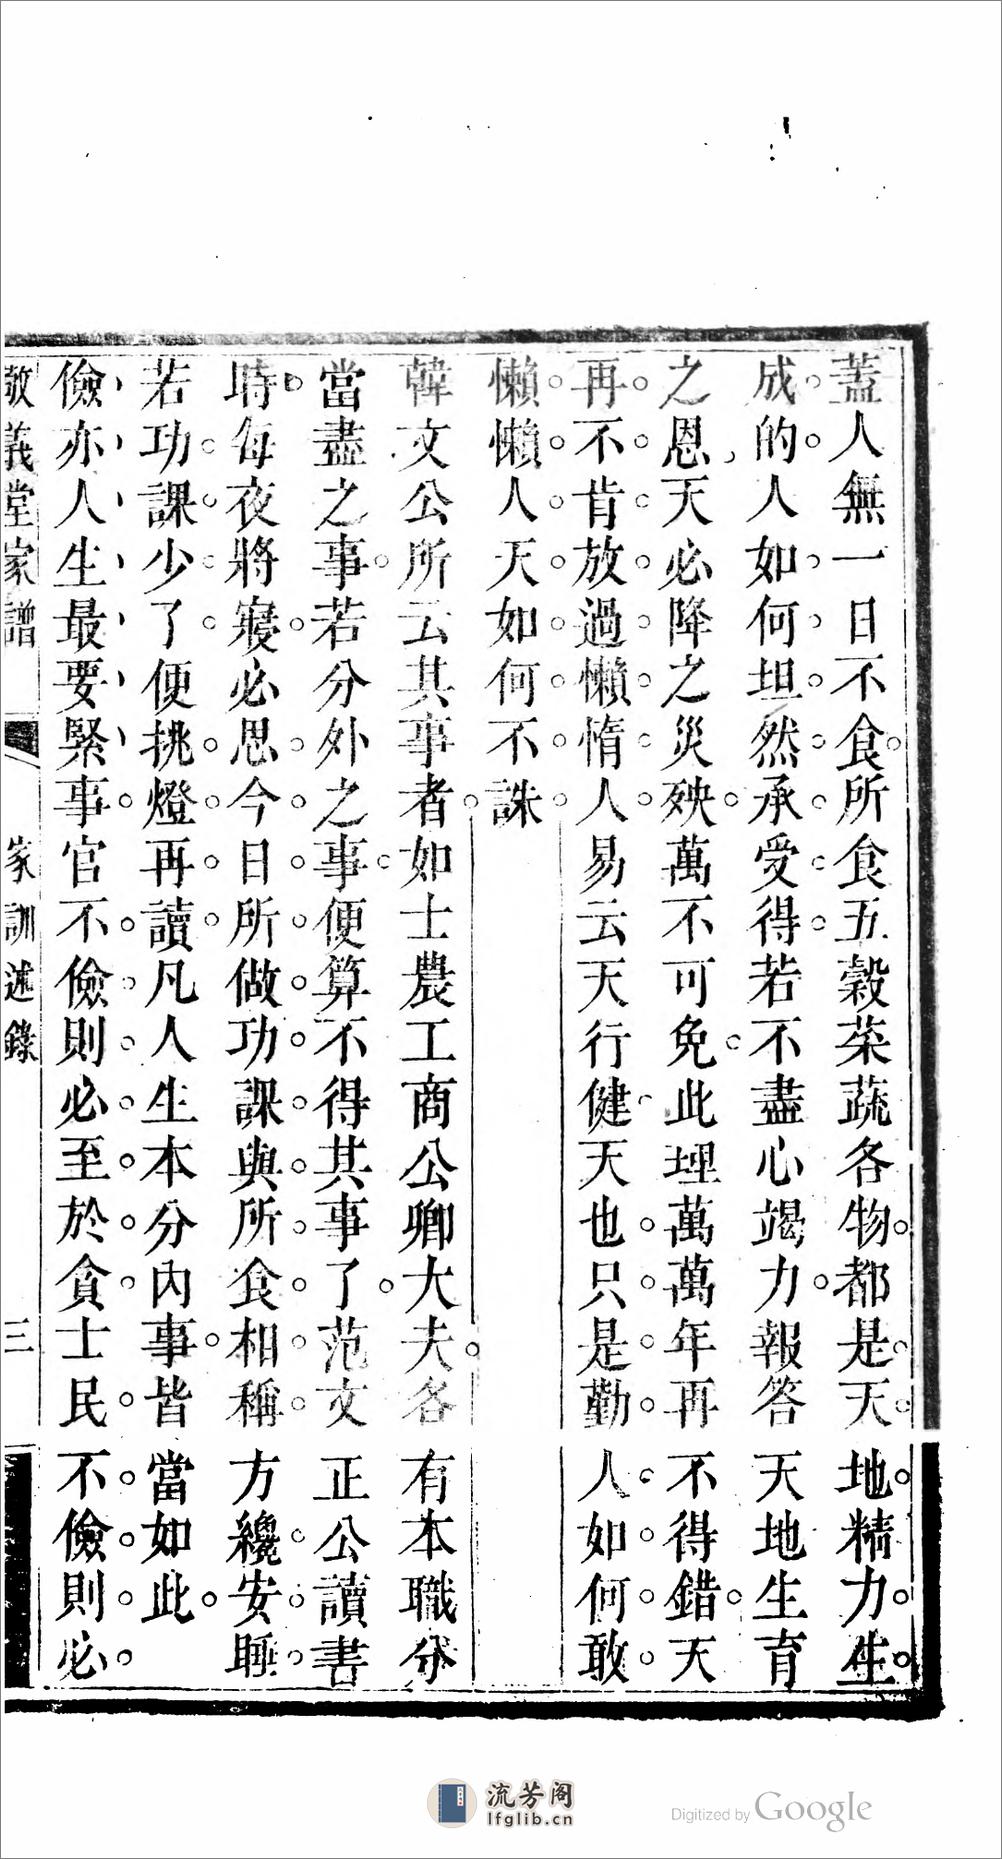 蓋人無一日不食所食五穀菜蔬各物都是天地精力生
成的人如何坦然承受得若不盡心竭力報答天地生育
之恩天必降之災殃萬不可免此理萬萬年再不得錯天
再不肯放過懶惰人易云天行健天也只是勤人如何敢
懶懶人天如何不誅
韓文公所云其事者如士農工商公卿大夫各有本職分
當盡之事若分外之事便算不得其事了范文正公讀書
時每夜將寢必思今日所做功課與所食相稱方纔安睡
若功課少了便挑燈再讀凡人生本分內事皆當如此
儉亦人生最要緊事官不儉則必至於貪士民不儉則必
敬義堂家譜 家訓述錄 三
流芳阁
lfglib.cn
Digitized by Google